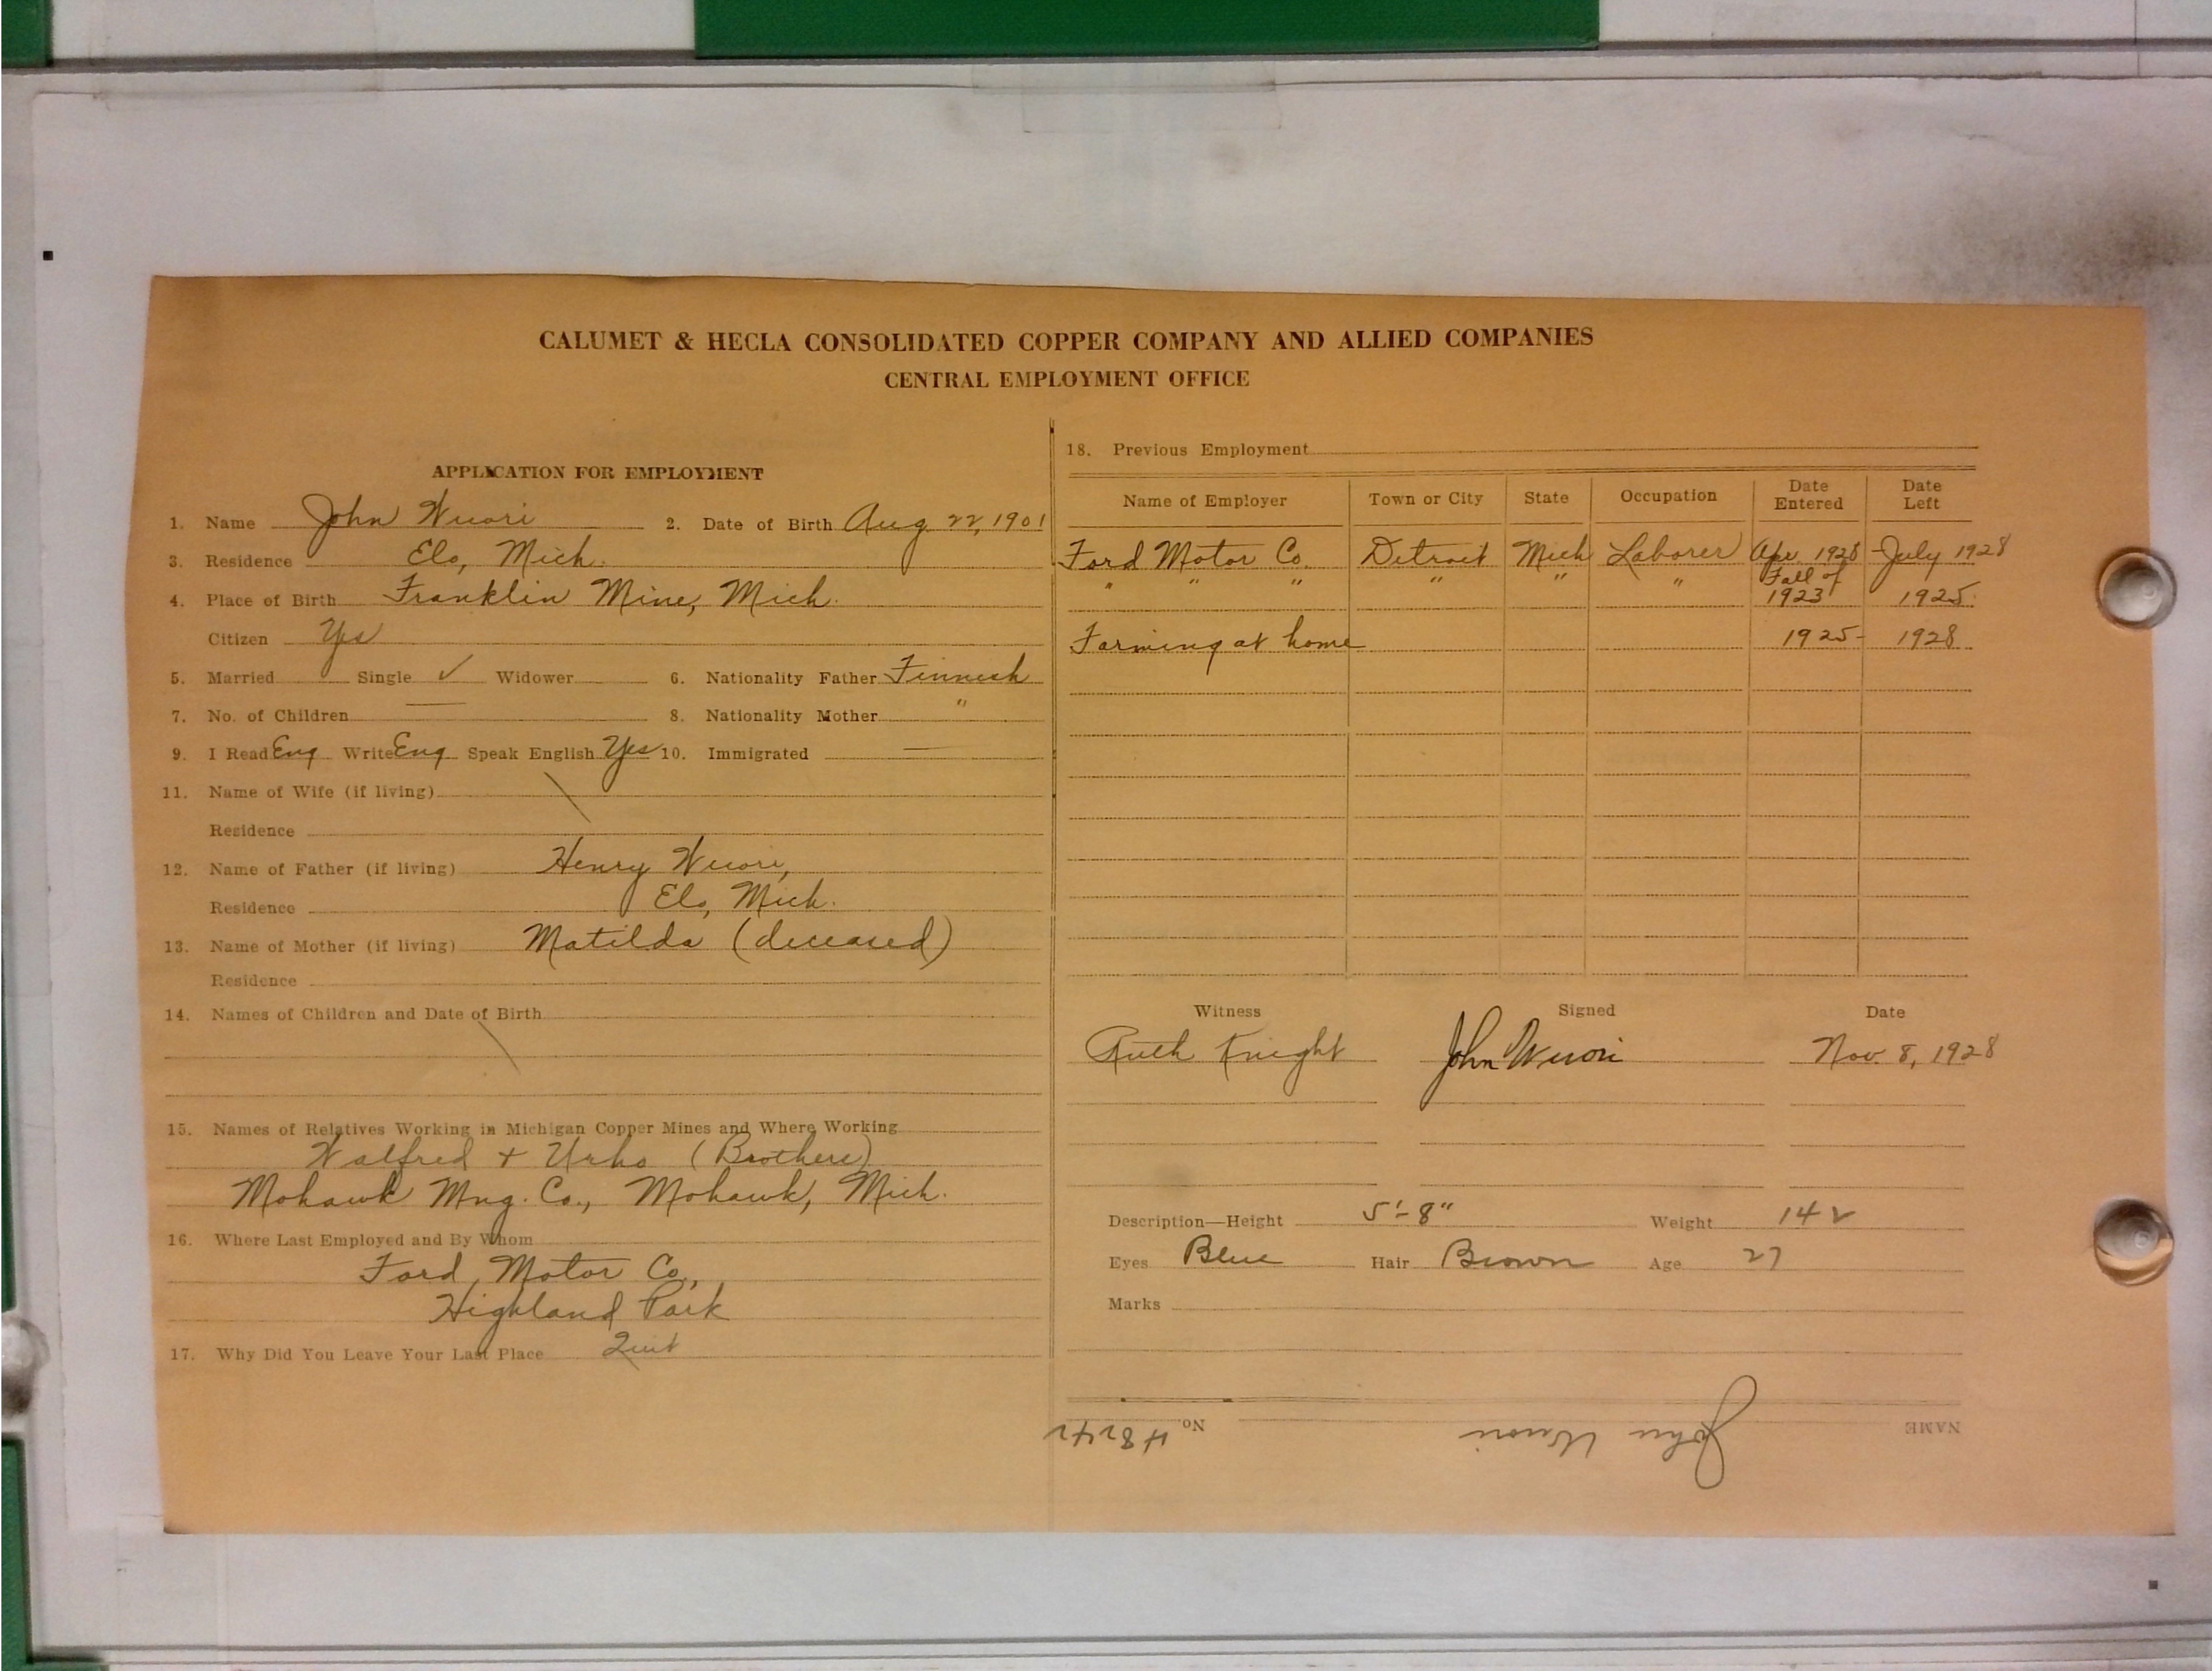 CALUMET & HECLA CONSOLIDATED COPPER COMPANY AND ALLIED COMPANIES
CENTRAL EMPLOYMENT OFFICE
APPLICATION FOR EMPLOYMENT
1. Name John Wuori 2. Date of Birth Aug 22, 1901
3. Residence Elo, Mich.
4. Place of Birth Franklin Mine, Mich.
Citizen Yes
5. Married Single ✓ Widower 6. Nationality Father Finnish
7. No. of Children — 8. Nationality Mother "
9. I Read Eng Write Eng Speak English Yes 10. Immigrated —
11. Name of Wife (if living)
Residence
12. Name of Father (if living) Henry Wuori,
Residence Elo, Mich.
13. Name of Mother (if living) Matilda (deceased)
Residence
14. Names of Children and Date of Birth
15. Names of Relatives Working in Michigan Copper Mines and Where Working
Walfred + Urho (Brothers)
Mohawk Mng. Co., Mohawk, Mich.
16. Where Last Employed and By Whom
Ford Motor Co.,
Highland Park
17. Why Did You Leave Your Last Place Quit
18. Previous Employment
Name of Employer Town or City State Occupation Date Entered Date Left
Ford Motor Co. Detroit Mich Laborer Apr. 1928 July 1928
" " " " " " Fall of 1923 1925
Farming at home 1925- 1928
Witness Signed Date
Ruth Knight John Wuori Nov. 8, 1928
Description—Height 5'-8" Weight 142
Eyes Blue Hair Brown Age 27
Marks
NAME John Wuori No. 48242